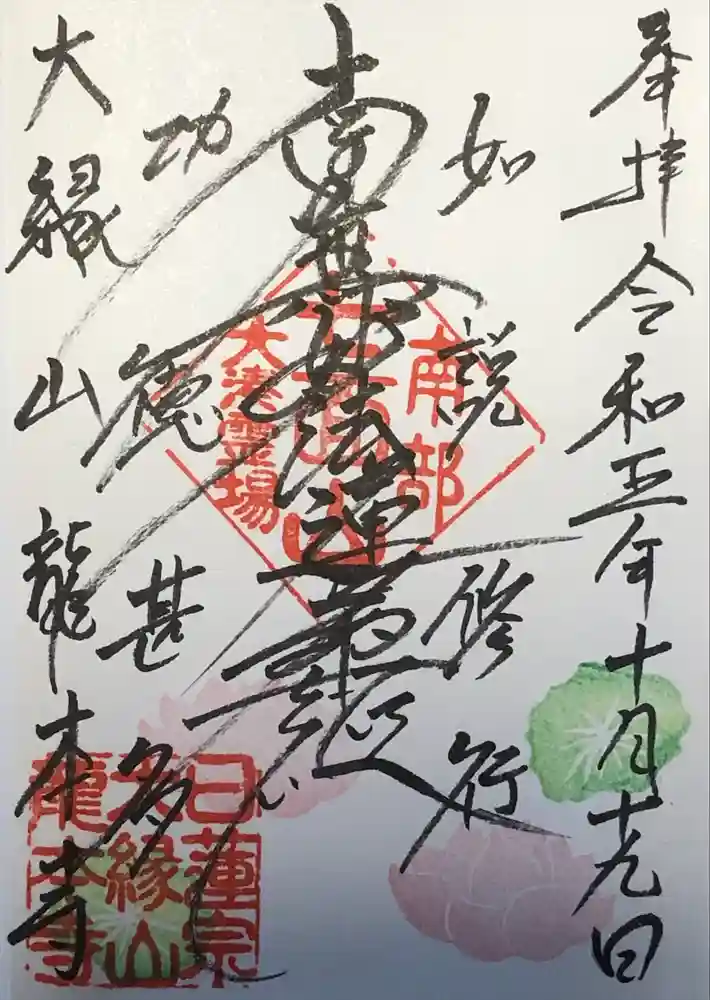 奉拝 令和五年十月十九日
如説修行
南無妙法蓮華経
功徳甚多
大縁山龍本寺
南部
霊場
日蓮宗
大縁山
龍本寺